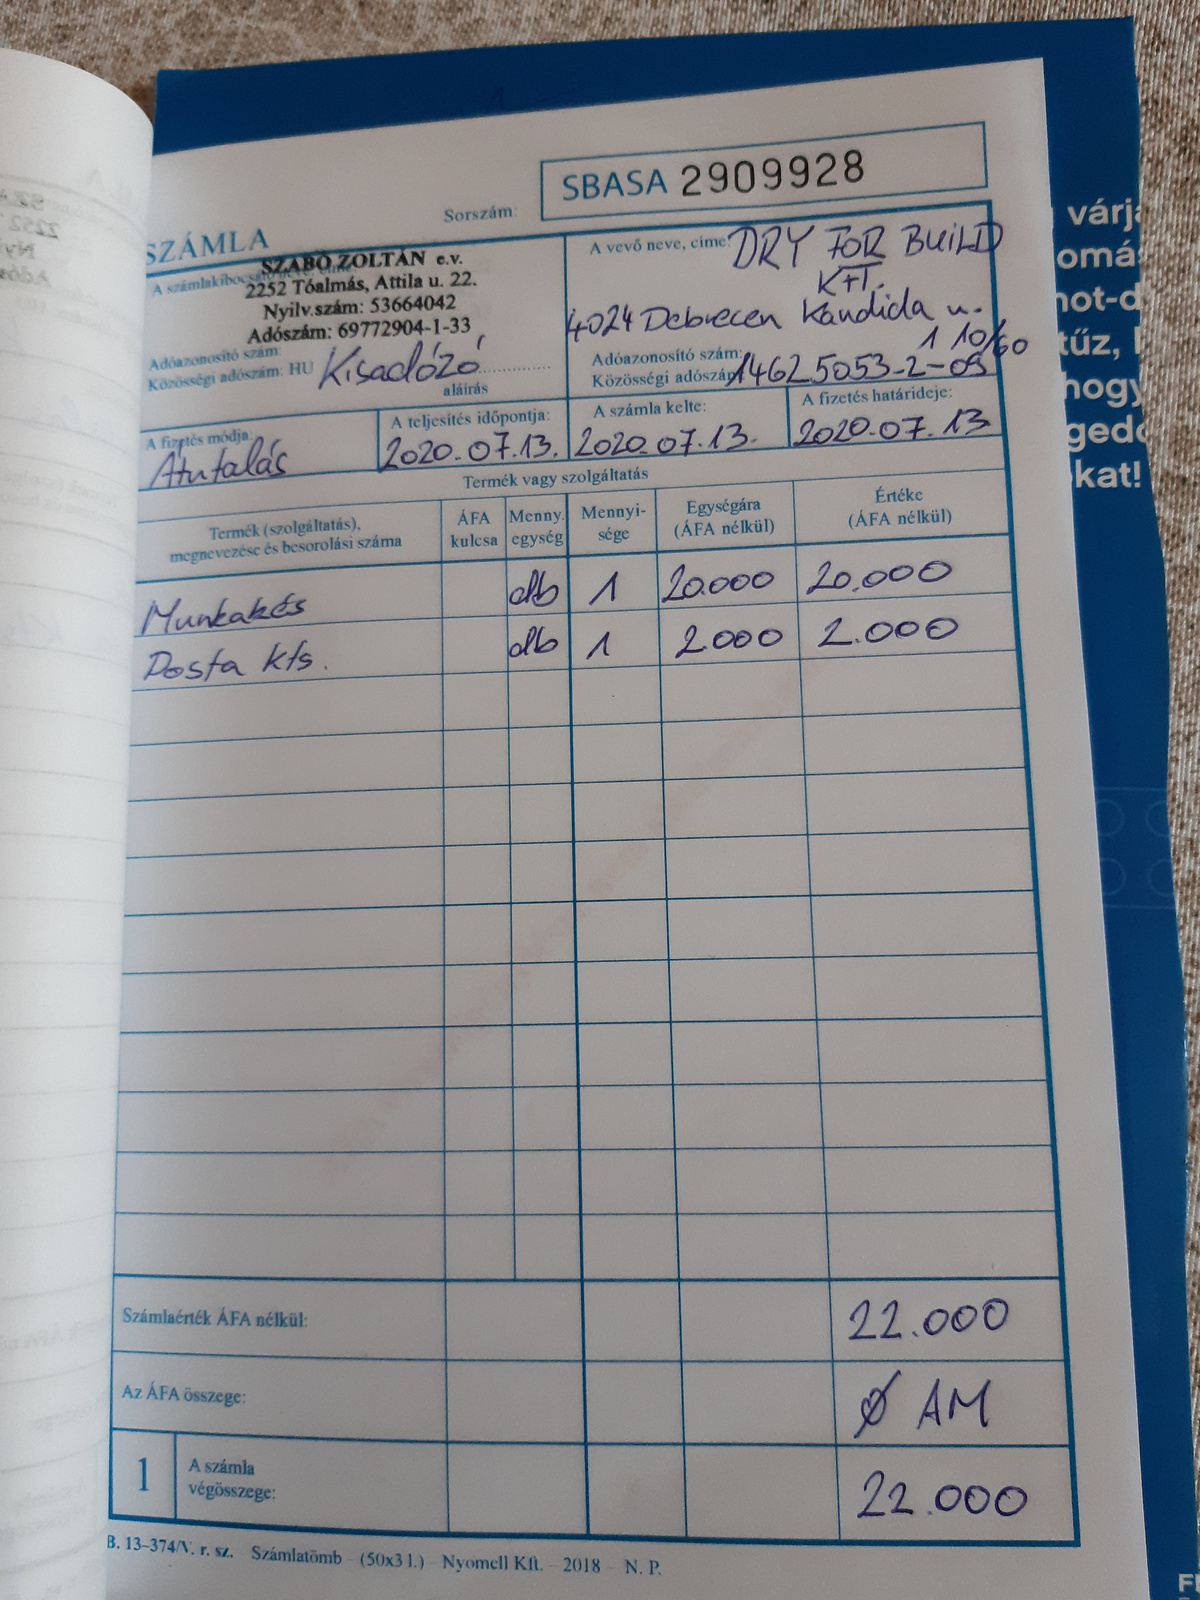 SZÁMLA
Sorszám:
SBASA 2909928
SZABÓ ZOLTÁN e.v.
2252 Tóalmás, Attila u. 22.
Nyilv.szám: 53664042
Adószám: 69772904-1-33
Adóazonosító szám:
Közösségi adószám: HU
Kisadózó
aláírás
A vevő neve, címe:
DRY FOR BUILD
KFT.
4024 Debrecen Kandida u.
1 10/60
Adóazonosító szám:
Közösségi adószám
14625053-2-09
A fizetés módja:
Átutalás
A teljesítés időpontja:
2020.07.13.
A számla kelte:
2020.07.13.
A fizetés határideje:
2020.07.13
Termék vagy szolgáltatás
Termék (szolgáltatás), megnevezése és besorolási száma
ÁFA kulcsa
Menny. egység
Mennyi-sége
Egységára (ÁFA nélkül)
Értéke (ÁFA nélkül)
Munkakés db 1 20.000 20.000
Posta kts. db 1 2.000 2.000
Számlaérték ÁFA nélkül: 22.000
Az ÁFA összege: Ø AM
1 A számla végösszege: 22.000
B. 13–374/V. r. sz. Számlatömb – (50x3 l.) – Nyomell Kft. – 2018 – N. P.
kat!